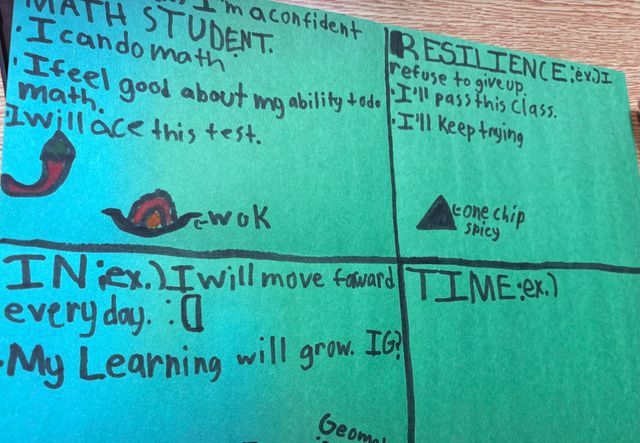 I'm a confident
MATH STUDENT.
• I can do math
• I feel good about my ability to do
math.
• I will ace this test.
WOK
RESILIENCE: ex.) I
refuse to give up.
• I'll pass this class.
• I'll keep trying
one chip
spicy
IN: ex.) I will move forward
every day. :D
• My Learning will grow. IG?
TIME: ex.)